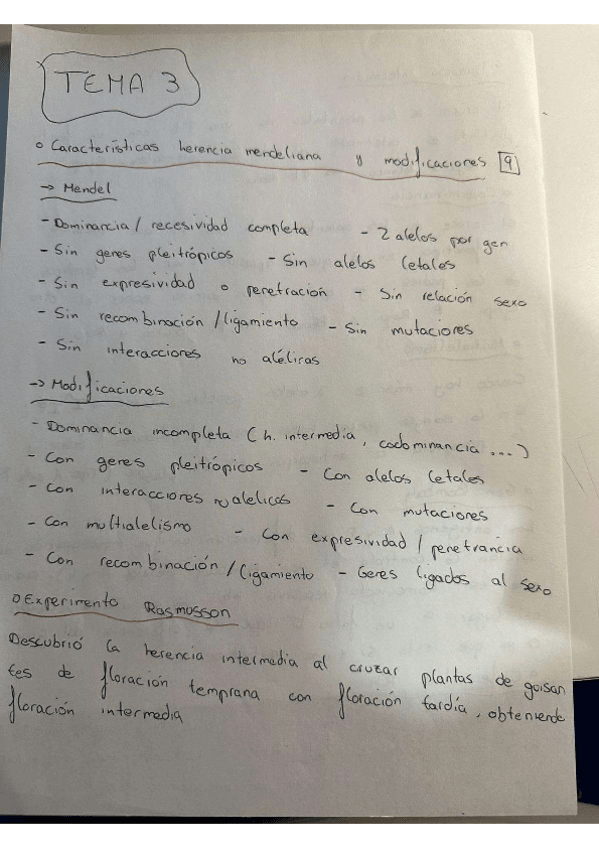 TEMA 3
o Características herencia mendeliana y modificaciones [9]
→ Mendel
- Dominancia / recesividad completa - 2 alelos por gen
- Sin genes pleitrópicos - Sin alelos letales
- Sin expresividad o penetración - Sin relación sexo
- Sin recombinación / ligamiento - Sin mutaciones
- Sin interacciones no alélicas
→ Modificaciones
- Dominancia incompleta (h. intermedia, codominancia ...)
- Con genes pleitrópicos - Con alelos letales
- Con interacciones no alélicas - Con mutaciones
- Con multialelismo - Con expresividad / penetrancia
- Con recombinación / ligamiento - Genes ligados al sexo
o Experimento Rasmusson
Descubrió la herencia intermedia al cruzar plantas de guisan
tes de floración temprana con floración tardía, obteniendo
floración intermedia